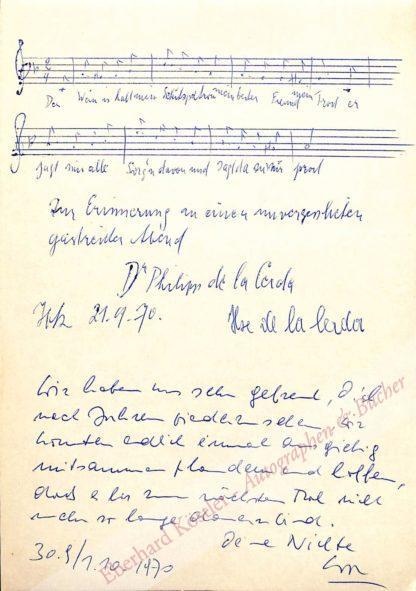 Der Wein is halt mein bester Freund mein Trost er
Jagt mir alle Sorgen davon und sagt da zu mir prost
Zur Erinnerung an einen unvergesslichen
geistreichen Abend
Dr Philipp de la Cerda
21.9.70. Ilse de la Cerda
Wir haben uns sehr gefreut, Dich
nach Jahren wiederzusehen. Wir
konnten endlich einmal ausgiebig
mitsammen plaudern und hoffen,
dass es bis zum nächsten Mal nicht
mehr so lange dauern wird.
Deine Nichte
30.9/1.10.1970
Eberhard Köstler Autographen & Bücher